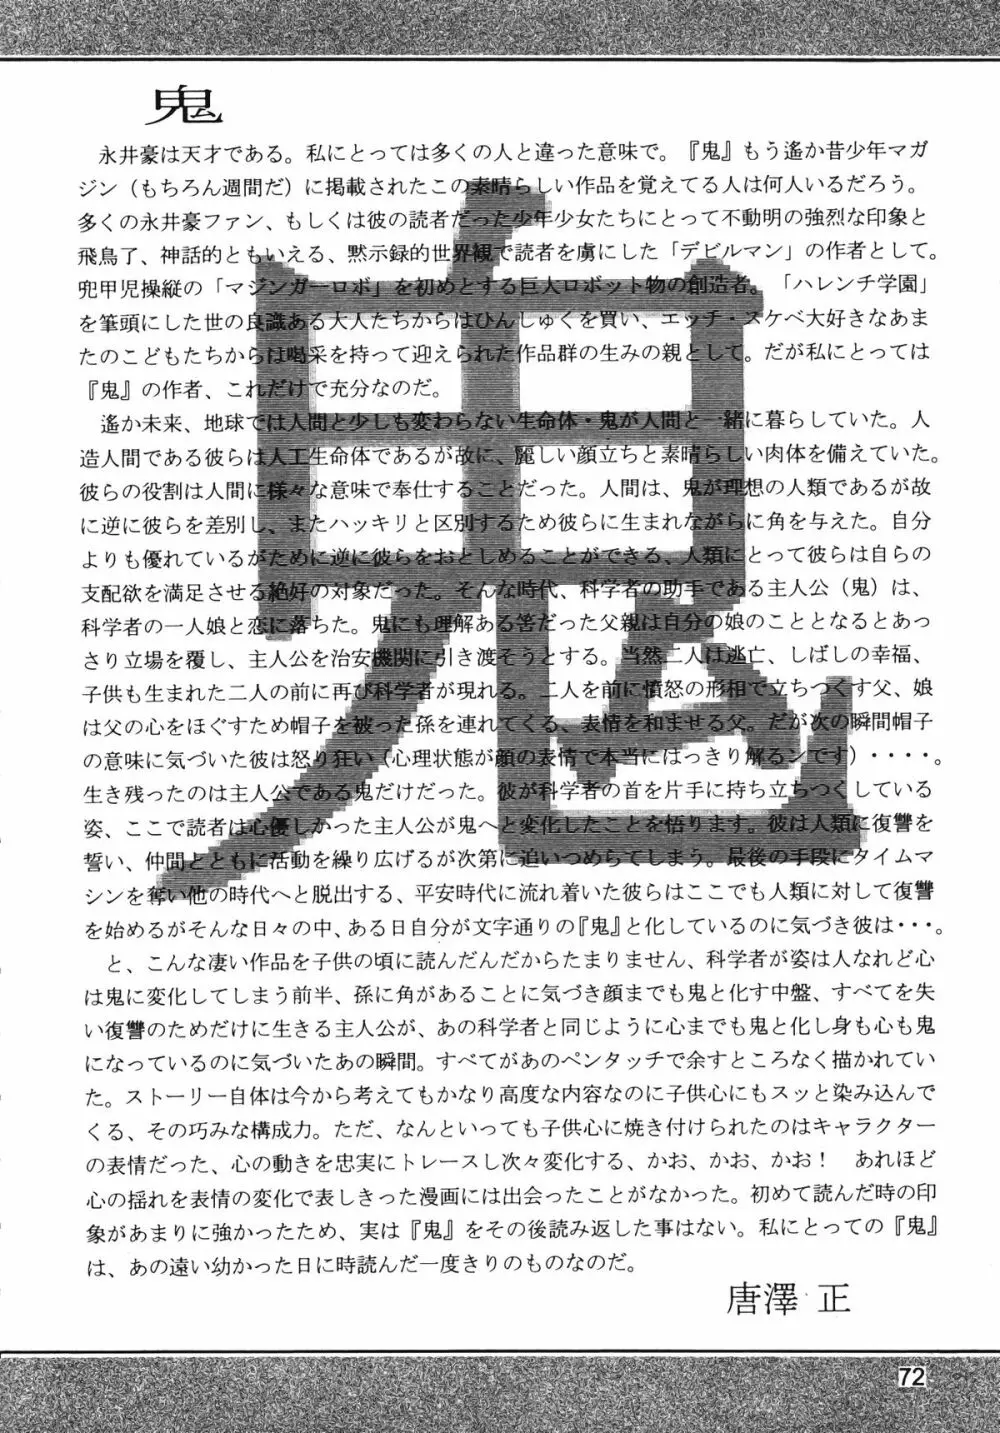 鬼
永井豪は天才である。私にとっては多くの人と違った意味で。『鬼』もう遙か昔少年マガ
ジン（もちろん週間だ）に掲載されたこの素晴らしい作品を覚えてる人は何人いるだろう。
多くの永井豪ファン、もしくは彼の読者だった少年少女たちにとって不動明の強烈な印象と
飛鳥了、神話的ともいえる、黙示録的世界観で読者を虜にした「デビルマン」の作者として。
兜甲児操縦の「マジンガーロボ」を初めとする巨大ロボット物の創造者。「ハレンチ学園」
を筆頭にした世の良識ある大人たちからはひんしゅくを買い、エッチ・スケベ大好きなあま
たのこどもたちからは喝采を持って迎えられた作品群の生みの親として。だが私にとっては
『鬼』の作者、これだけで充分なのだ。
遙か未来、地球では人間と少しも変わらない生命体・鬼が人間と一緒に暮らしていた。人
造人間である彼らは人工生命体であるが故に、麗しい顔立ちと素晴らしい肉体を備えていた。
彼らの役割は人間に様々な意味で奉仕することだった。人間は、鬼が理想の人類であるが故
に逆に彼らを差別し、またハッキリと区別するため彼らに生まれながらに角を与えた。自分
よりも優れているがために逆に彼らをおとしめることができる、人類にとって彼らは自らの
支配欲を満足させる絶好の対象だった。そんな時代、科学者の助手である主人公（鬼）は、
科学者の一人娘と恋に落ちた。鬼にも理解ある筈だった父親は自分の娘のこととなるとあっ
さり立場を覆し、主人公を治安機関に引き渡そうとする。当然二人は逃亡、しばしの幸福、
子供も生まれた二人の前に再び科学者が現れる。二人を前に憤怒の形相で立ちつくす父、娘
は父の心をほぐすため帽子を被った孫を連れてくる、表情を和ませる父。だが次の瞬間帽子
の意味に気づいた彼は怒り狂い（心理状態が顔の表情で本当にはっきり解るンです）・・・・。
生き残ったのは主人公である鬼だけだった。彼が科学者の首を片手に持ち立ちつくしている
姿、ここで読者は心優しかった主人公が鬼へと変化したことを悟ります。彼は人類に復讐を
誓い、仲間とともに活動を繰り広げるが次第に追いつめらてしまう。最後の手段にタイムマ
シンを奪い他の時代へと脱出する、平安時代に流れ着いた彼らはここでも人類に対して復讐
を始めるがそんな日々の中、ある日自分が文字通りの『鬼』と化しているのに気づき彼は・・・。
と、こんな凄い作品を子供の頃に読んだんだからたまりません、科学者が姿は人なれど心
は鬼に変化してしまう前半、孫に角があることに気づき顔までも鬼と化す中盤、すべてを失
い復讐のためだけに生きる主人公が、あの科学者と同じように心までも鬼と化し身も心も鬼
になっているのに気づいたあの瞬間。すべてがあのペンタッチで余すところなく描かれてい
た。ストーリー自体は今から考えてもかなり高度な内容なのに子供心にもスッと染み込んで
くる、その巧みな構成力。ただ、なんといっても子供心に焼き付けられたのはキャラクター
の表情だった、心の動きを忠実にトレースし次々変化する、かお、かお、かお！　あれほど
心の揺れを表情の変化で表しきった漫画には出会ったことがなかった。初めて読んだ時の印
象があまりに強かったため、実は『鬼』をその後読み返した事はない。私にとっての『鬼』
は、あの遠い幼かった日に時読んだ一度きりのものなのだ。
唐澤 正
72
鬼